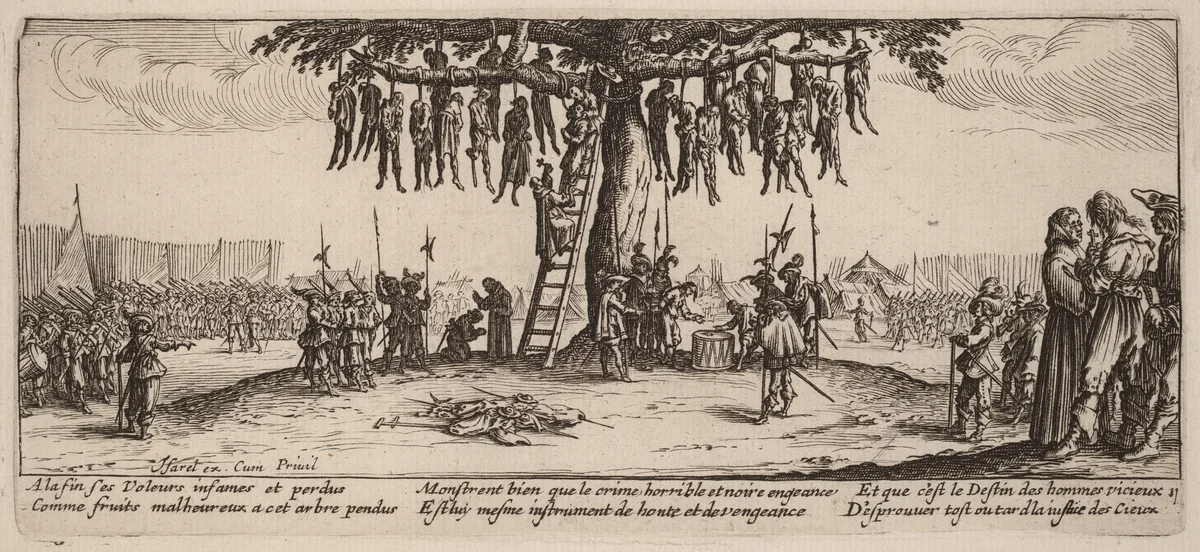 Israel ex. Cum Privil
A la fin ses Voleurs infames et perdus
Comme fruits malheureux a cet arbre pendus
Monstrent bien que le crime horrible et noire engeance
Est luy mesme instrument de honte et de vengeance
Et que cest le Destin des hommes vicieux
Desprouver tost ou tard la iustice des Cieux
11